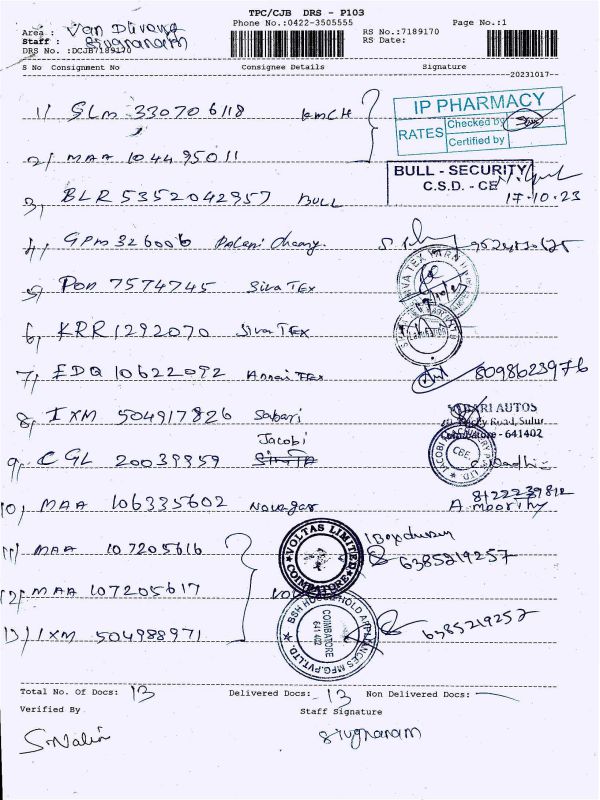 TPC/CJB DRS - P103
Phone No.:0422-3505555
Page No.:1
Area :
Staff :
DRS No. :DCJB7189170
RS No.:7189170
RS Date:
S No Consignment No Consignee Details Signature
20231017
1) SLM 330706118 KMCH
IP PHARMACY
RATES Checked by
Certified by
2) MAA 104495011
BULL - SECURITY
C.S.D. - CE
17-10-23
3) BLR 5352042957 BULL
4) GPM 326006
5) PON 7574745 Siva TEX
6) KRR 1292070 Siva TEX
7) EDQ 10622092 Annai TEX 8098623976
8) IXM 504917826 Sabari
SABARI AUTOS
Road, Sulur
Coimbatore - 641402
Jacobi
9) CGL 20039959
CBE.
10) MAA 106335602 Navagar
8122239812
A. Moorthy
11) MAA 107205616
VOLTAS LIMITED
COIMBATORE
6385219257
12) MAA 107205617
BSH HOUSEHOLD APPLIANCES MFG.PVT.LTD.
COIMBATORE
641 402
13) IXM 504988971
6385219257
Total No. Of Docs: 13 Delivered Docs: 13 Non Delivered Docs: —
Verified By Staff Signature
S. Nalin